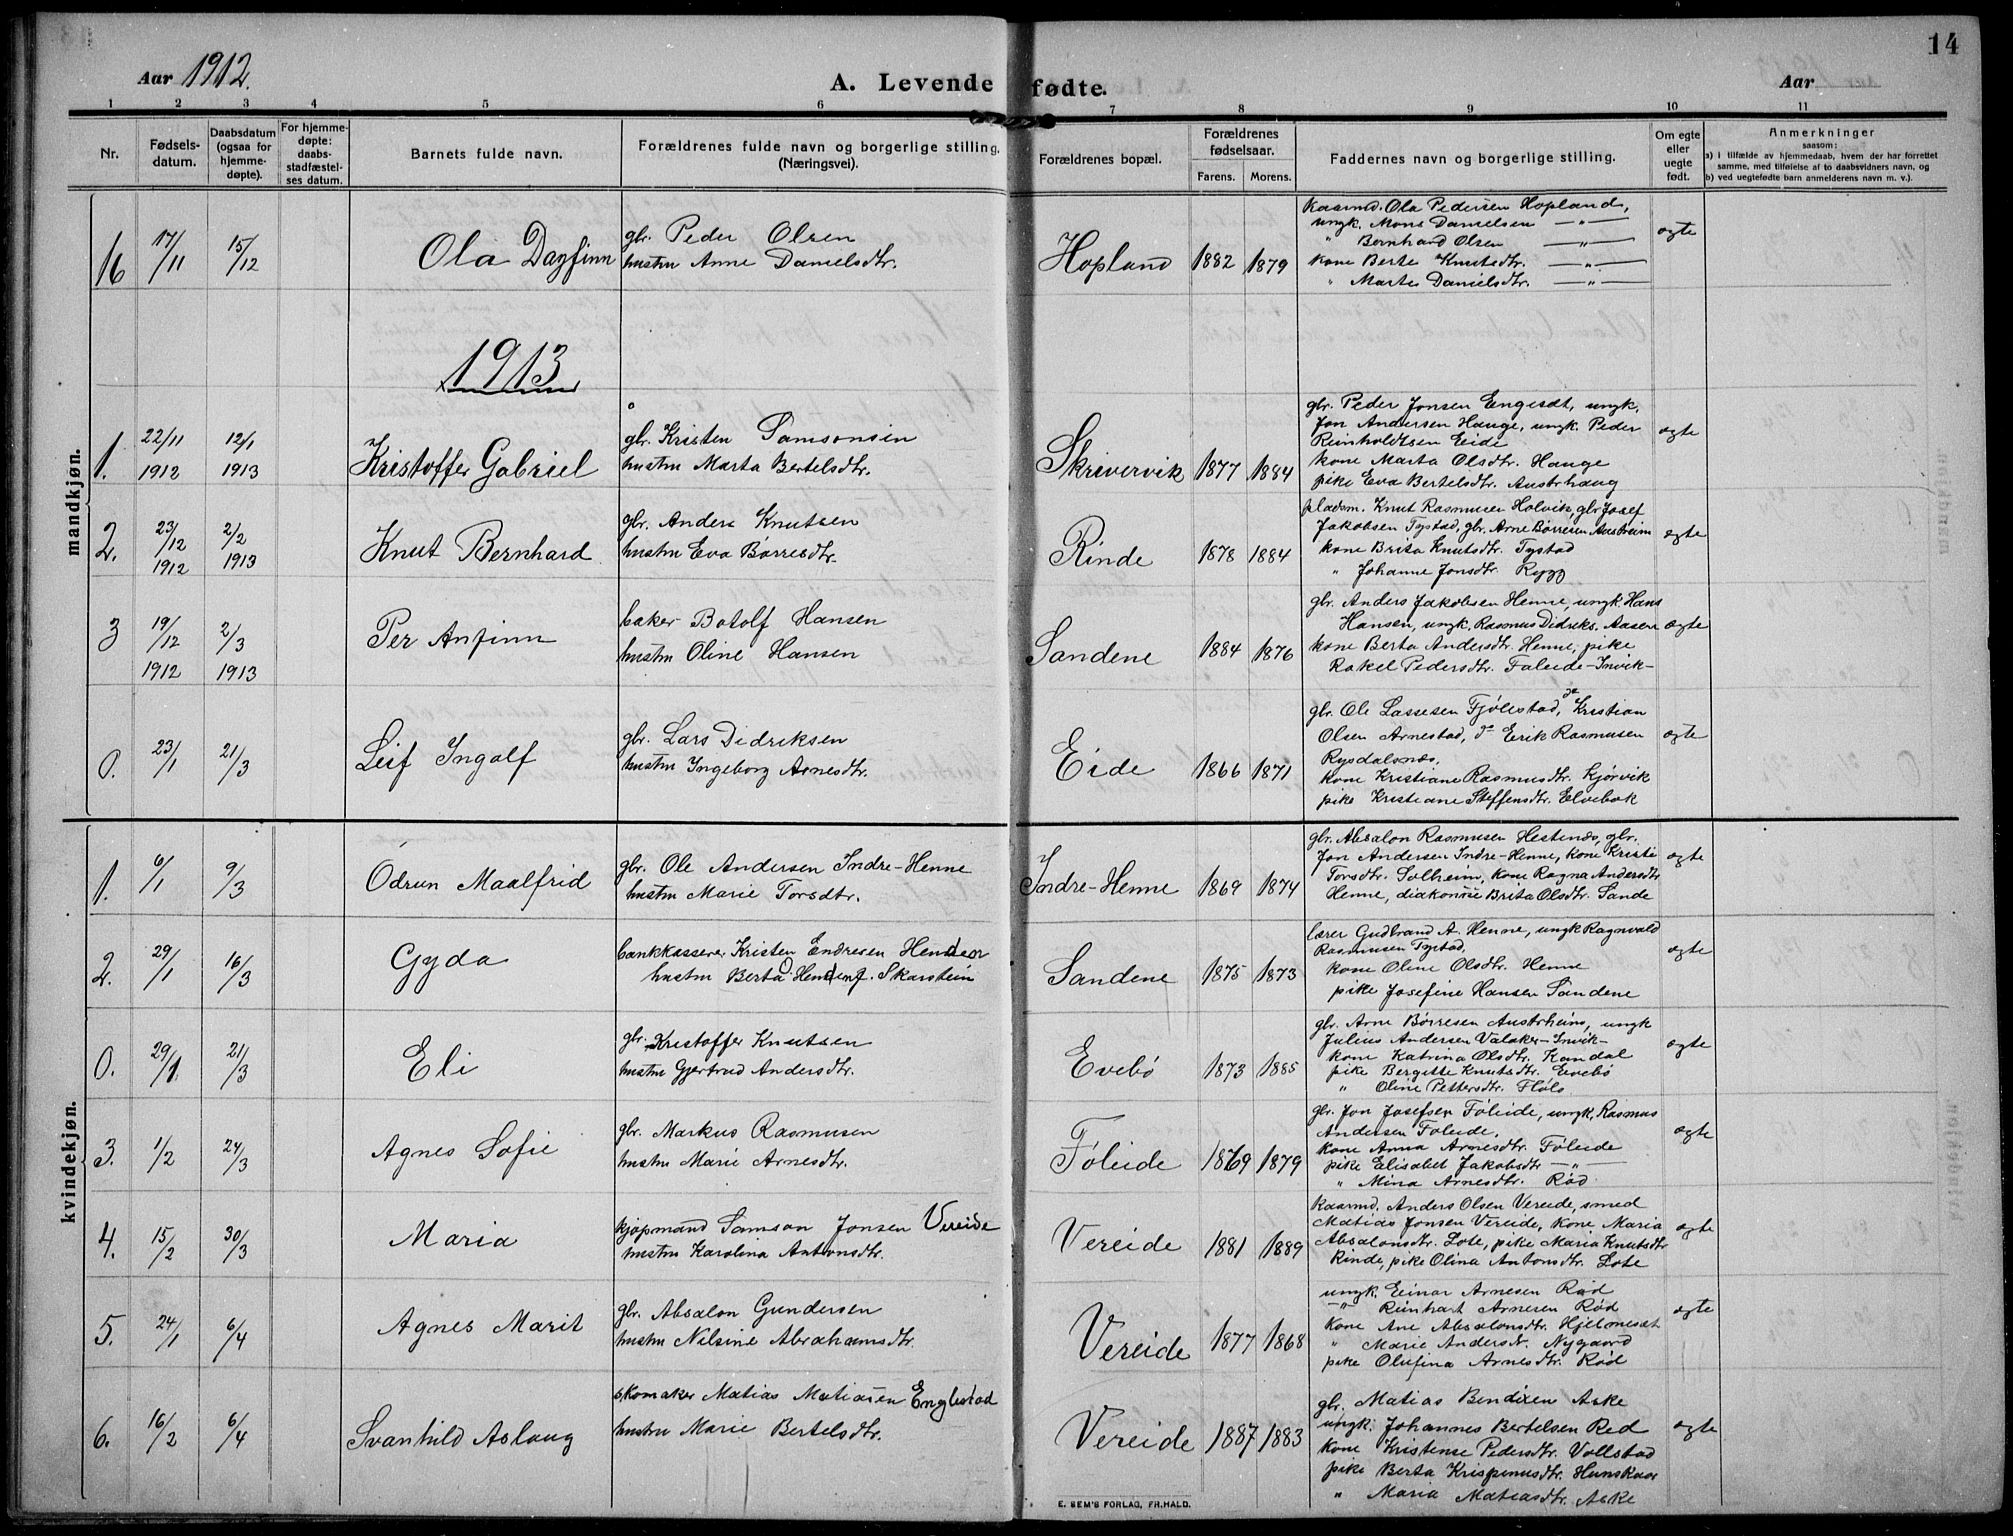 14
Aar 1912.
A. Levende fødte.
Aar
1 2 3 4 5 6 7 8 9 10 11
Nr.
Fødsels-
datum.
Daabsdatum
(ogsaa for
hjemme-
døpte).
For hjemme-
døpte:
daabs-
stadfæstel-
ses datum.
Barnets fulde navn.
Forældrenes fulde navn og borgerlige stilling.
(Næringsvei).
Forældrenes bopæl.
Forældrenes
fødselsaar.
Farens. Morens.
Faddernes navn og borgerlige stilling.
Om egte
eller
uegte
født.
Anmerkninger
saasom:
a) i tilfælde av hjemmedaab, hvem der har forrettet
samme, med tilføielse af to daabsvidners navn, og
b) ved uegtefødte barn anmelderens navn m. v.).
mandkjøn.
16 17/11 15/12 Ola Dagfinn
gbr. Peder Olsen
hustru Anne Danielsdtr.
Hopland 1882 1879
kaarmd. Ola Pedersen Hopland,
ungk. Mons Danielsen —"—
" Bernhard Olsen —"—
kone Berte Knutsdtr. —"—
" Marte Danielsdtr. —"—
egte
1913
1. 22/11 1912 12/1 1913 Kristoffer Gabriel
gbr. Kristen Samsonsen
hustru Marta Bertelsdtr.
Skrivervik 1877 1884
gbr. Peder Jonsen Engesæt, ungk.
Jon Andersen Hauge, ungk. Peder
Reinholdtsen Eide
kone Marta Olsdtr. Hauge
pike Eva Bertelsdtr. Austrhaug
egte
2. 23/12 1912 2/2 1913 Knut Bernhard
gbr. Anders Knutsen
hustru Eva Børresdtr.
Rinde 1878 1884
pladsm. Knut Rasmusen Holvik, gbr Josef
Jakobsen Tystad, gbr. Arne Børresen Austrheim
kone Brita Knutsdtr. Tystad
" Johanne Jonsdtr. Rygg
egte
3 19/12 1912 2/3 1913 Per Anfinn
baker Botolf Hansen
hustru Oline Hansen
Sandene 1884 1876
gbr. Anders Jakobsen Henne, ungk. Hans
Hansen, ungk. Rasmus Didriks. Aasen
kone Berta Andersdtr. Henne, pike
Rakel Pedersdtr. Faleide-Invik-
egte
0. 23/1 21/3 Leif Ingolf
gbr. Lars Didriksen
hustru Ingeborg Arnesdtr.
Eide 1866 1871
gbr. Ole Lassesen Fjølestad, do Kristian
Olsen Arnestad, do Erik Rasmusen
Rysdalsnæs,
kone Kristiane Rasmusdtr. Kjørvik
pike Kristiane Steffensdtr. Elvebak
egte
kvindekjøn.
1. 6/1 9/3 Odrun Maalfrid
gbr. Ole Andersen Indre-Henne
hustru Marie Torsdtr.
Indre-Henne 1869 1874
gbr. Absalon Rasmusen Hestenes, gbr.
Jon Andersen Indre-Henne, kone Kristi
Torsdtr. Solheim, kone Ragna Andersdtr
Henne, diakonisse Brita Olsdtr. Sande
egte
2. 29/1 16/3 Gyda
bankkasserer Kristen Endresen Henden
hustru Berta Henden f. Skarstein
Sandene 1875 1873
lærer Gudbrand A. Henne, ungk Ragnvald
Rasmusen Tystad,
kone Oline Olsdtr. Henne
pike Josefine Hansen Sandene
egte
0. 29/1 21/3 Eli
gbr. Kristoffer Knutsen
hustru Gjertrud Andersdtr.
Evebø 1873 1885
gbr. Arne Børresen Austrheim, ungk
Julius Andersen Valaker-Invik-
kone Katrina Olsdtr. Kandal
pike Bergitte Knutsdtr. Evebø
" Oline Pettersdtr. Fløls
egte
3. 1/2 24/3 Agnes Sofie
gbr. Markus Rasmusen
hustru Marie Arnesdtr.
Føleide 1869 1879
gbr. Jon Josefsen Føleide, ungk. Rasmus
Andersen Føleide,
kone Anna Arnesdtr. Føleide
pike Elisabet Jakobsdtr —"—
" Mina Arnesdtr. Rød
egte
4. 15/2 30/3 Maria
kjøpmand Samson Jonsen Vereide
hustru Karolina Antonsdtr.
Vereide 1881 1889
Kaarmd. Anders Olsen Vereide, smed
Matias Jonsen Vereide, kone Maria
Absalonsdtr. Lote, pike Maria Knutsdtr
Rinde, pike Olina Antonsdtr. Lote
egte
5. 24/1 6/4 Agnes Marit
gbr. Absalon Gundersen
hustru Nilsine Abrahamsdtr.
Vereide 1877 1868
ungk. Einar Arnesen Rød
—"— Reinhart Arnesen Rød
kone Ane Absalonsdtr. Hjelmesæt
" Marie Andersdt. Nygaard
pike Olufina Arnesdtr. Rød
egte
6. 16/2 6/4 Svanhild Aslaug
skomaker Matias Matiasen Englestad
hustru Marie Bertelsdtr.
Vereide 1887 1883
gbr. Matias Bendixen Aske
ungk. Johannes Bertelsen Red
kone Kristense Pedersdtr. Vollstad
pike Berta Krispinusdtr. Hunskaar
" Maria Matiasdtr. Aske
egte
E. SEM'S FORLAG, FR.HALD.